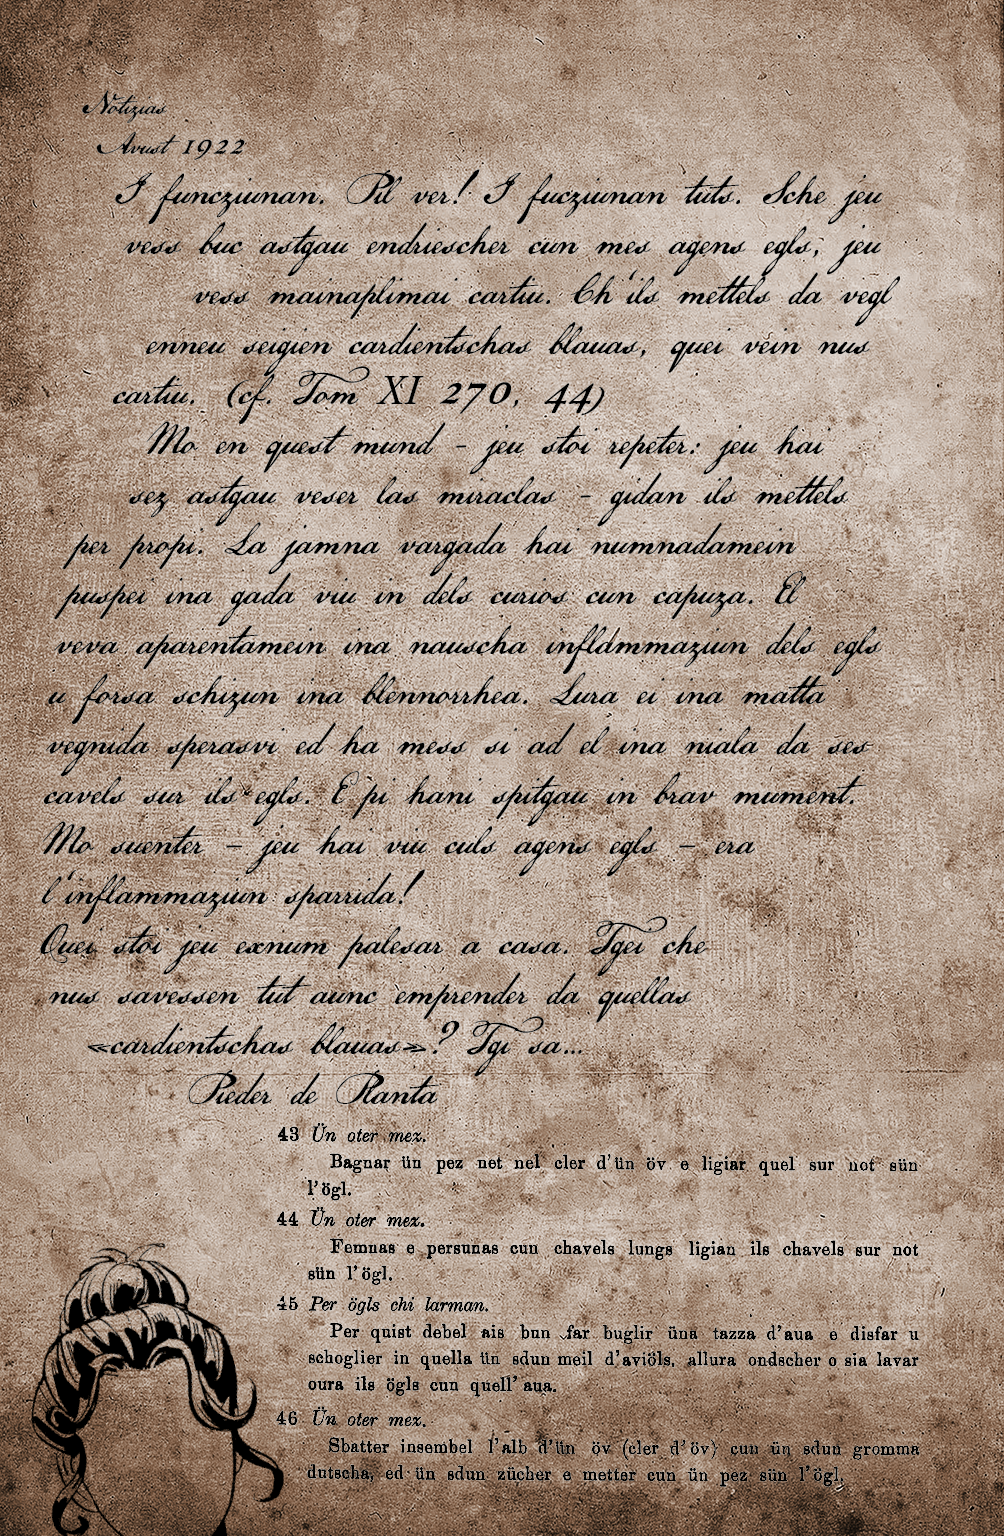 Notizias
Avust 1922
I funcziunan. Pil ver! I fucziunan tuts. Sche jeu
vess buc astgau endriescher cun mes agens egls, jeu
vess mainaplimai cartiu. Ch'ils mettels da vegl
enneu seigien cardientschas blauas, quei vein nus
cartiu. (cf. Tom XI 270, 44)
Mo en quest mund - jeu stoi repeter: jeu hai
sez astgau veser las miraclas - gidan ils mettels
per propi. La jamna vargada hai numnadamein
puspei ina gada viu in dels curios cun capuza. El
veva aparentamein ina nauscha inflammaziun dels egls
u forsa schizun ina blennorrhea. Lura ei ina matta
vegnida sperasvi ed ha mess si ad el ina niala da ses
cavels sur ils egls. E pi hani spitgau in brav mument.
Mo suenter - jeu hai viu culs agens egls - era
l'inflammaziun sparrida!
Quei stoi jeu exnum palesar a casa. Tgei che
nus savessen tut aunc emprender da quellas
«cardientschas blauas»? Tgi sa...
Pieder de Planta
43 Ün oter mez.
Bagnar ün pez net nel cler d'ün öv e ligiar quel sur not sün
l'ögl.
44 Ün oter mez.
Femnas e persunas cun chavels lungs ligian ils chavels sur not
sün l'ögl.
45 Per ögls chi larman.
Per quist debel ais bun far buglir üna tazza d'aua e disfar u
schoglier in quella ün sdun meil d'aviöls, allura ondscher o sia lavar
oura ils ögls cun quell'aua.
46 Ün oter mez.
Sbatter insembel l'alb d'ün öv (cler d'öv) cun ün sdun gromma
dutscha, ed ün sdun zücher e metter cun ün pez sün l'ögl.